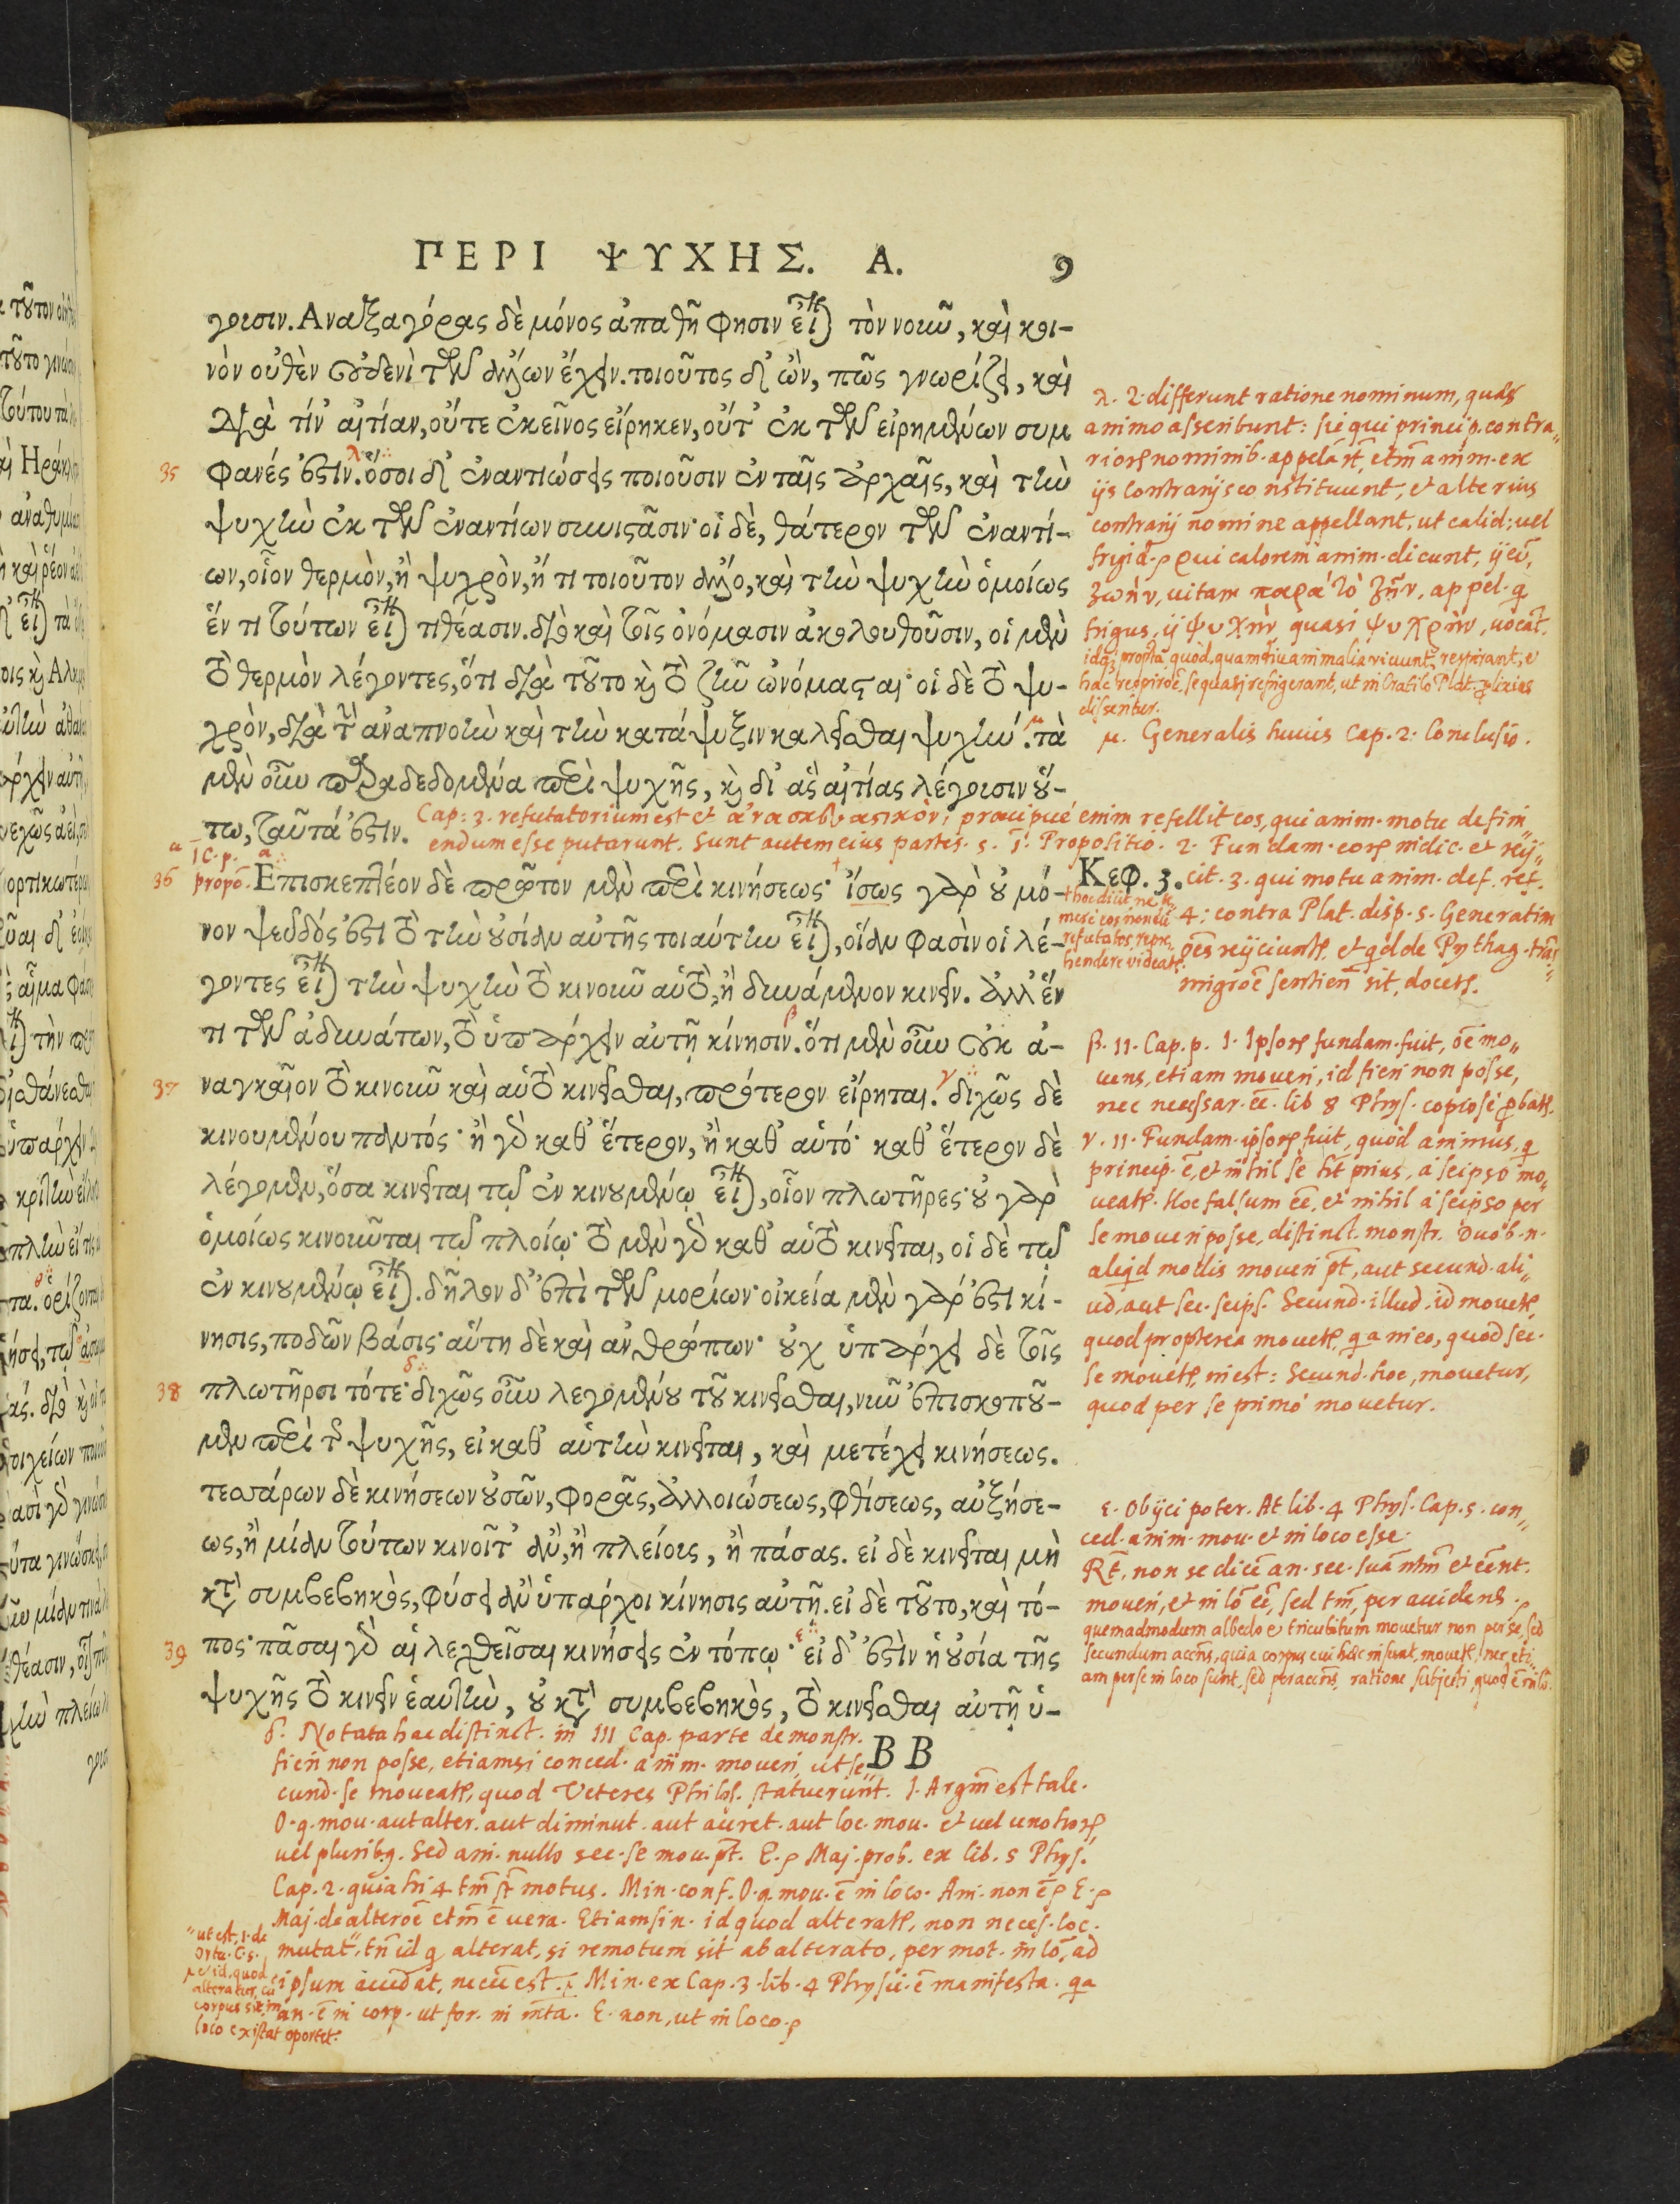 ΠΕΡΙ ΨΥΧΗΣ. Α. 9
γουσιν. Αναξαγόρας δὲ μόνος ἀπαθῆ φησιν εἶναι τὸν νοῦν, καὶ κοι-
νὸν οὐθὲν οὐδενὶ τῶν ἄλλων ἔχειν. τοιοῦτος δ' ὢν, πῶς γνωρίζει, καὶ
διὰ τίν' αἰτίαν, οὔτε ἐκεῖνος εἴρηκεν, οὔτ' ἐκ τῶν εἰρημένων συμ
35 φανές ἐστιν. λ ὅσοι δ' ἐναντιώσεις ποιοῦσιν ἐν ταῖς ἀρχαῖς, καὶ τὴν
ψυχὴν ἐκ τῶν ἐναντίων συνιστᾶσιν· οἱ δὲ, θάτερον τῶν ἐναντί-
ων, οἷον θερμὸν, ἢ ψυχρὸν, ἤ τι τοιοῦτον ἄλλο, καὶ τὴν ψυχὴν ὁμοίως
ἕν τι τούτων εἶναι τιθέασιν. διὸ καὶ τοῖς ὀνόμασιν ἀκολουθοῦσιν, οἱ μὲν
τὸ θερμὸν λέγοντες, ὅτι διὰ τοῦτο καὶ τὸ ζῆν ὠνόμασται· οἱ δὲ τὸ ψυ-
χρὸν, διὰ τὴν ἀναπνοὴν καὶ τὴν κατάψυξιν καλεῖσθαι ψυχήν. μ τὰ
μὲν οὖν παραδεδομένα περὶ ψυχῆς, καὶ δι' ἃς αἰτίας λέγουσιν οὕ-
τω, ταῦτά ἐστιν.
Cap: 3. refutatorium est et ἀνασκευαστικὸν; praecipué enim refellit eos, qui anim. motu defini„
endum esse putarunt. Sunt autem eius partes. 5. 1. Propositio. 2. Fundam. eorꝝ indic. et reij„
Κεφ. 3. cit. 3. qui motu anim. def. ref.
4: contra Plat. disp. 5. Generatim
oēs reijciuntꝝ, et qd de Pythag. trās„
migrōe sentiend sit, docetꝝ.
36 Επισκεπτέον δὲ πρῶτον μὲν περὶ κινήσεως· ἴσως γὰρ οὐ μό-
νον ψεῦδός ἐστι τὸ τὴν οὐσίαν αὐτῆς τοιαύτην εἶναι, οἵαν φασὶν οἱ λέ-
γοντες εἶναι τὴν ψυχὴν τὸ κινοῦν αὑτὸ, ἢ δυνάμενον κινεῖν. ἀλλ' ἕν
τι τῶν ἀδυνάτων, τὸ ὑπάρχειν αὐτῇ κίνησιν. β ὅτι μὲν οὖν οὐκ ἀ-
37 ναγκαῖον τὸ κινοῦν καὶ αὐτὸ κινεῖσθαι, πρότερον εἴρηται. γ διχῶς δὲ
κινουμένου παντός· ἢ γὰρ καθ' ἕτερον, ἢ καθ' αὑτό· καθ' ἕτερον δὲ
λέγομεν, ὅσα κινεῖται τῷ ἐν κινουμένῳ εἶναι, οἷον πλωτῆρες· οὐ γὰρ
ὁμοίως κινοῦνται τῷ πλοίῳ· τὸ μὲν γὰρ καθ' αὑτὸ κινεῖται, οἱ δὲ τῷ
ἐν κινουμένῳ εἶναι. δῆλον δ' ἐπὶ τῶν μορίων· οἰκεία μὲν γάρ ἐστι κί-
νησις, ποδῶν βάσις· αὕτη δὲ καὶ ἀνθρώπων· οὐχ ὑπάρχει δὲ τοῖς
38 πλωτῆρσι τότε· δ διχῶς οὖν λεγομένου τοῦ κινεῖσθαι, νῦν ἐπισκοποῦ-
μεν περὶ τῆς ψυχῆς, εἰ καθ' αὑτὴν κινεῖται, καὶ μετέχει κινήσεως.
τεσσάρων δὲ κινήσεων οὐσῶν, φορᾶς, ἀλλοιώσεως, φθίσεως, αὐξήσε-
ως, ἢ μίαν τούτων κινοῖτ' ἂν, ἢ πλείους, ἢ πάσας. εἰ δὲ κινεῖται μὴ
κατὰ συμβεβηκὸς, φύσει ἂν ὑπάρχοι κίνησις αὐτῇ. εἰ δὲ τοῦτο, καὶ τό-
39 πος· πᾶσαι γὰρ αἱ λεχθεῖσαι κινήσεις ἐν τόπῳ· ε εἰ δ' ἐστὶν ἡ οὐσία τῆς
ψυχῆς τὸ κινεῖν ἑαυτὴν, οὐ κατὰ συμβεβηκὸς, τὸ κινεῖσθαι αὐτῇ ὑ-
BB
λ. 2. differunt ratione nominum, quas
animo asscribunt: sic qui princip. contra„
riorꝝ nominib. appelārt, etm anim. ex
ijs contrarijs constituunt, et alterius
contrarij nomine appellant, ut calid: vel
frigid. Qui calorem anim. dicunt, ij eū,
ζωὴν, uitam παρὰ τὸ ζῆν, appel. q
frigus, ij ψυχὴν quasi ψυχρὴν, uocāt.
idq propt̄a quòd, quamdiu animalia uiuunt, respirant, e
hac respirōe, se quasi refrigerant, ut in Cratilo Plat. plixius
disseritur.
μ. Generalis huius Cap. 2. Conclusio.
β. 11. Cap. p. 1. Ipsorꝝ fundam. fuit, oē mo„
uens, etiam moueri, id fieri non posse,
nec necessar. eē. lib 8 Phys. copiosé pbatꝝ.
γ. 11. Fundam. ipsorꝝ fuit, quòd animus, q
princip. ē, et nihil se hēt prius, à seipso mo„
ueatꝝ. Hoc falsum eē, et nihil à seipso per
se moueri posse, distinct. monstr. Duob. n.
aliqd modis moueri pt, aut secund. ali„
ud, aut sec. seips. Secund. illud. id mouetꝝ,
quod propterea mouetꝝ, qa in eo, quod sec.
se mouetꝝ, inest: Secund. hoc, mouetur,
quod per se primó mouetur.
ε. Obijci poter. At lib. 4 Phys. Cap. 5. con„
ced. anim. mou. et in loco esse.
moueri, et in lō eē, sed tm, per accidens.
quemadmodum albedo e tricubitum mouetur non per se, sed
secundum accns, quia corpus cui haec insunt, mouetꝝ, nec eti„
am per se in loco sunt, sed per accns, ratione subjecti, quod ē in lō.
δ. Notata hac distinct. in III Cap. parte demonstr.
fieri non posse, etiamsi conced. anim. moueri, ut se„
cund. se moueatꝝ, quod Veteres Philos. statuerunt. 1. Argm est tale.
O. q. mou. aut alter. aut diminut. aut accret. aut loc. mou. et uel uno horꝝ
uel pluribq. Sed ani. nullo sec. se mou. pt. E. Maj. prob. ex lib. 5 Phys.
Cap. 2. quia hi 4 tm st motus. Min. conf. O. q mou. ē in loco. Ani. non ē E.
Maj. de alterōe etm ē uera. Etiamsi n. id quod alteratꝝ, non neces. loc.
mutat„ tn id q alterat, si remotum sit ab alterato, per mot. in lō, ad
ipsum accedat, necē est. Min. ex Cap. 3. lib. 4 Physic. ē manifesta. qa
an. ē in corp. ut for. in mta. E. non, ut in loco.
„ut est, 1. de
Ortu. C. 5.
id, quod
alteratur, cū
corpus sit, in
loco existat oportet.